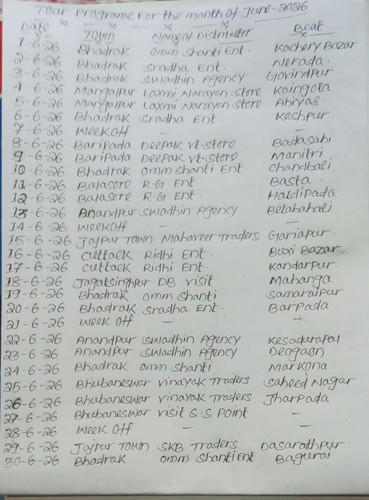 Tour Programe For the month of June-2026
Date Town Name of Distributer Beat
1-6-26 Bhadrak Omm Shanti Ent. Kachery Bazar
2-6-26 Bhadrak Sradha Ent. Nerada.
3-6-26 Bhadrak Swadhin Agency Govindpur
4-6-26 Mangalpur Laxmi Narayan Store Kaingota
5-6-26 Mangalpur Laxmi Narayan Store Ahiyas
6-6-26 Bhadrak Sradha Ent Keshpur
7-6-26 Week off — —
8-6-26 Baripada Deepak vt-store Badasahi
9-6-26 Baripada Deepak vt-store Manitri
10-6-26 Bhadrak Omm Shanti Ent. Chandbali
11-6-26 Balasore R.G. Ent Basta.
12-6-26 Balasore R.G. Ent. Haldipada
13-6-26 Anandpur Swadhin Agency Belabahali
14-6-26 Week off — —
15-6-26 Jajpur Town Mahaveer Traders Gariapur.
16-6-26 Cuttack Ridhi Ent. Buxi Bazar.
17-6-26 Cuttack Ridhi Ent. Kandarpur.
18-6-26 Jagatsinghpur DB visit Mahanga
19-6-26 Bhadrak Omm Shanti Samaraipur
20-6-26 Bhadrak Sradha Ent. Barpada
21-6-26 Week off — —
22-6-26 Anandpur Swadhin Agency Kesadurapal
23-6-26 Anandpur Swadhin Agency Deogaen
24-6-26 Bhadrak Omm Shanti Markona
25-6-26 Bhubaneswar Vinayak Traders Saheed Nagar
26-6-26 Bhubaneswar Vinayak Traders Jharpada
27-6-26 Bhubaneswar visit S.S Point —
28-6-26 Week off — —
29-6-26 Jajpur Town SKB Traders Dasarathpur.
30-6-26 Bhadrak Omm Shanti Ent Bagurai